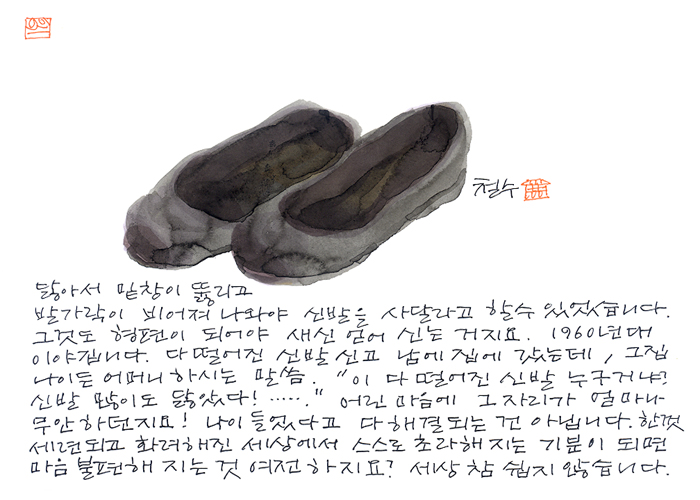 철수
닳아서 밑창이 뚫리고
발가락이 삐어져 나와야 신발을 사달라고 할수 있었습니다.
그것도 형편이 되어야 새신 얻어 신는 거지요. 1960년대
이야깁니다. 다 떨어진 신발 신고 남에 집에 갔는데, 그집
나이든 어머니 하시는 말씀. "이 다 떨어진 신발 누구거냐?
신발 많이도 닳았다! ....." 어린 마음에 그 자리가 얼마나
무안하던지요! 나이 들었다고 다 해결되는 건 아닙니다. 한껏
세련되고 화려해진 세상에서 스스로 초라해 지는 기분이 되면
마음 불편해 지는 것 여전 하지요? 세상 참 쉽지 않습니다.